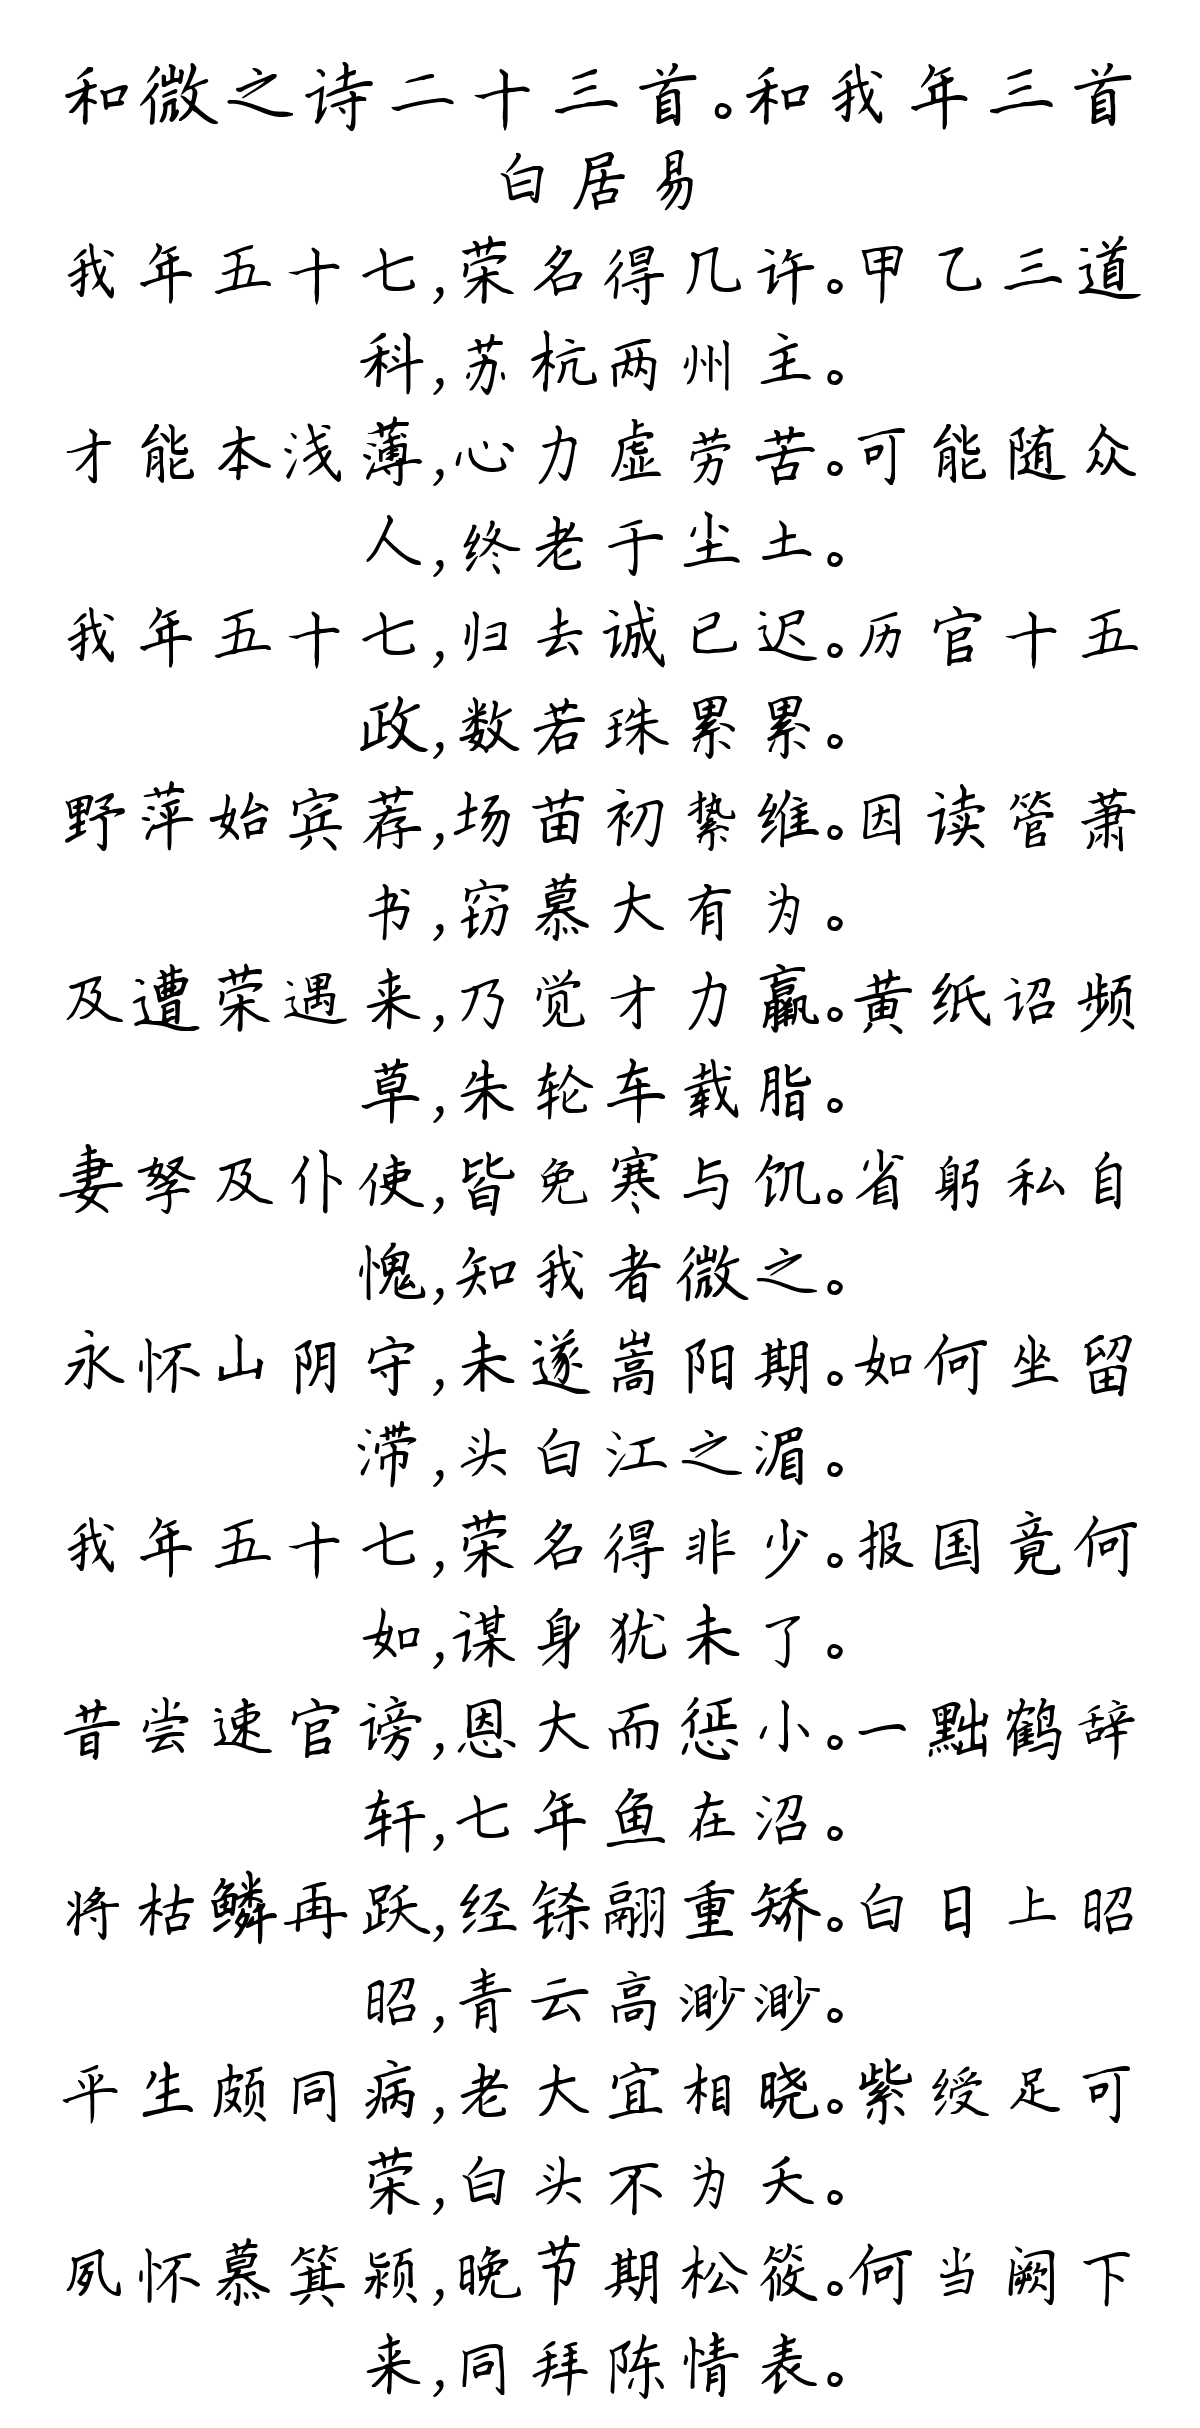 和微之诗二十三首。和我年三首
白居易
我年五十七,荣名得几许。甲乙三道
科,苏杭两州主。
才能本浅薄,心力虚劳苦。可能随众
人,终老于尘土。
我年五十七,归去诚已迟。历官十五
政,数若珠累累。
野萍始宾荐,场苗初絷维。因读管萧
书,窃慕大有为。
及遭荣遇来,乃觉才力羸。黄纸诏频
草,朱轮车载脂。
妻孥及仆使,皆免寒与饥。省躬私自
愧,知我者微之。
永怀山阴守,未遂嵩阳期。如何坐留
滞,头白江之湄。
我年五十七,荣名得非少。报国竟何
如,谋身犹未了。
昔尝速官谤,恩大而惩小。一黜鹤辞
轩,七年鱼在沼。
将枯鳞再跃,经铩翮重矫。白日上昭
昭,青云高渺渺。
平生颇同病,老大宜相晓。紫绶足可
荣,白头不为夭。
夙怀慕箕颍,晚节期松筱。何当阙下
来,同拜陈情表。